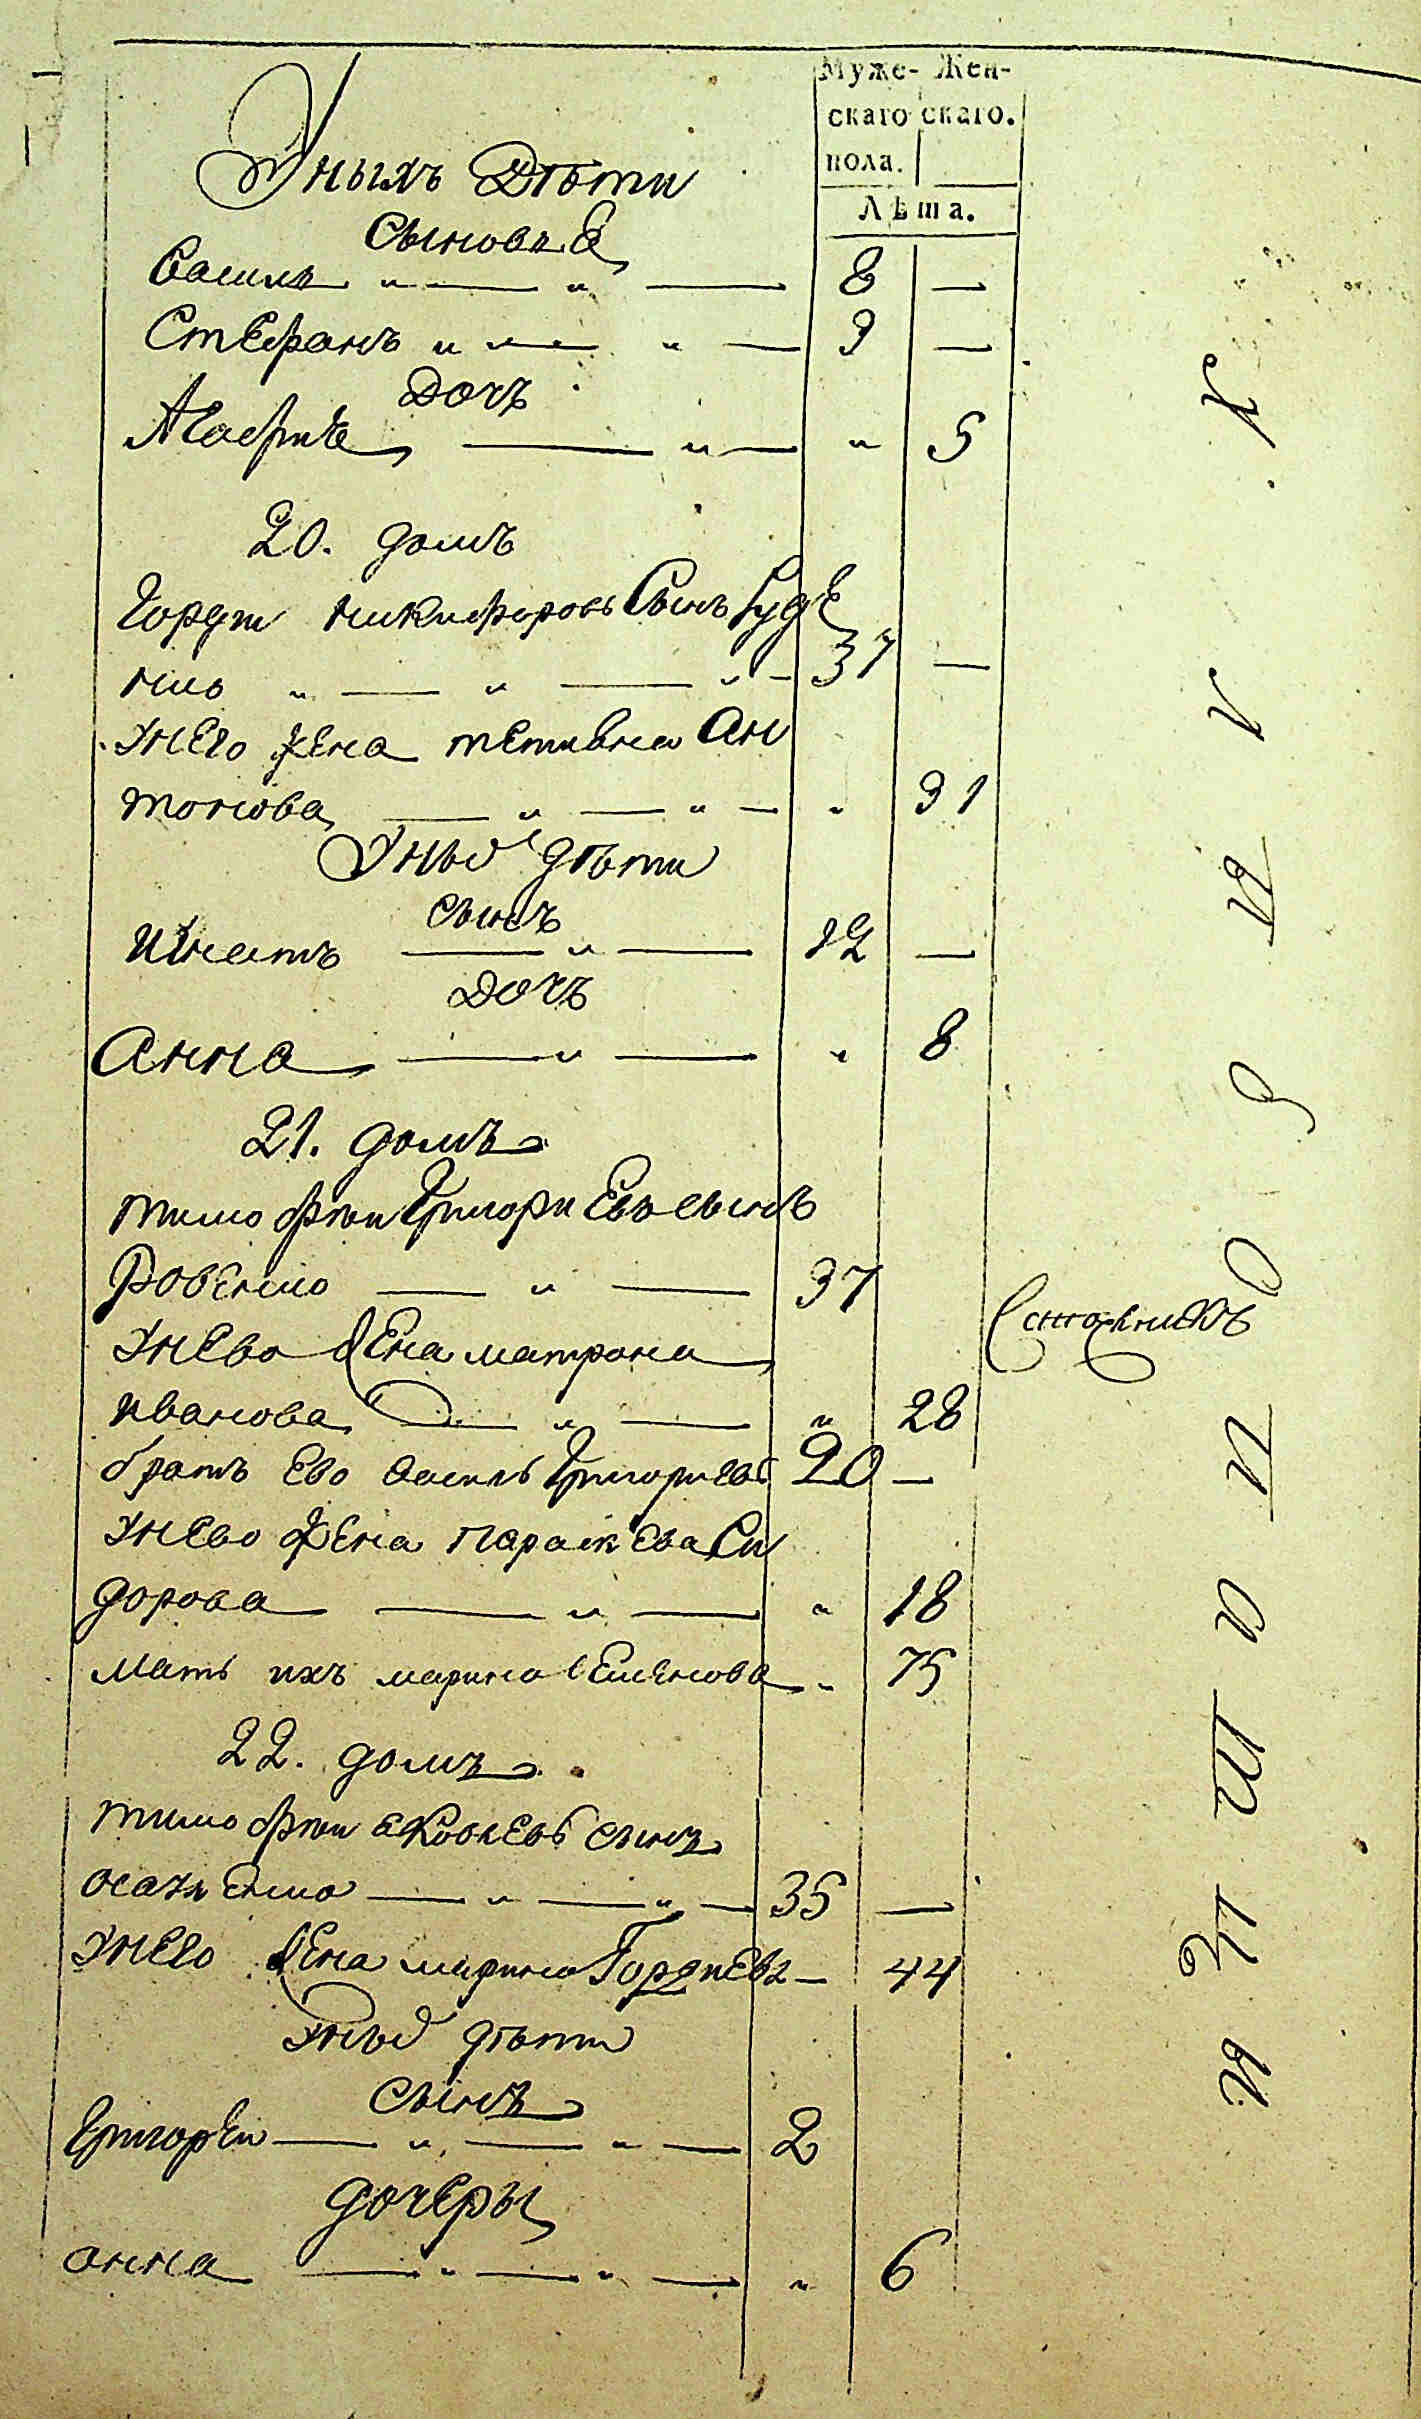 Муже- Жен-
скаго скаго.
пола.
Лѣта.
У ныхъ Дѣти
Сыновья
Василь 8 —
Стефанъ 9 —
Дочъ
Агафия " 5
20. домъ
Гордѣи Никифоровъ Сынъ Гуде
нко 37 —
У него жена тетивна Ан
тонова " 31
У ныхъ дѣти
сынъ
Игнатъ 12 —
Дочъ
Анна " 8
21. домъ
тимофѣи Григориевъ сынъ
Ровенко 37
У нево жена матрона
иванова " 28
братъ ево василь Григориевъ 20 —
У нево жена параскева Си
дорова " 18
мать ихъ марина семенова " 75
22. домъ
тимофѣи Яковлевъ сынъ
осаченко 35 —
У него жена марина Гордиева — 44
У ныхъ дѣти
сынъ
Григореи 2
дочеры
анна " 6